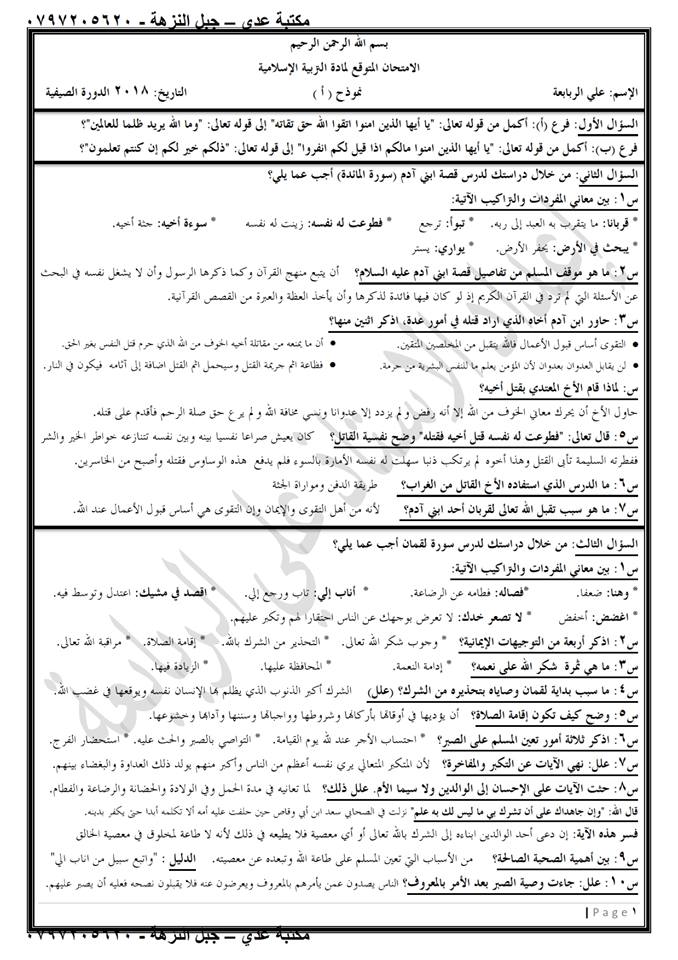 مكتبة عدي – جبل النزهة - ٠٧٩٧٢٠٥٦٢٠
بسم الله الرحمن الرحيم
الامتحان المتوقع لمادة التربية الإسلامية
الإسم: علي الربابعة نموذج ( أ ) التاريخ: ٢٠١٨ الدورة الصيفية
السؤال الأول: فرع (أ): أكمل من قوله تعالى: "يا أيها الذين امنوا اتقوا الله حق تقاته" إلى قوله تعالى: "وما الله يريد ظلما للعالمين"؟
فرع (ب): أكمل من قوله تعالى: "يا أيها الذين امنوا مالكم اذا قيل لكم انفروا" إلى قوله تعالى: "ذلكم خير لكم إن كنتم تعلمون"؟
السؤال الثاني: من خلال دراستك لدرس قصة ابني آدم (سورة المائدة) أجب عما يلي؟
س١: بين معاني المفردات والتراكيب الآتية:
* قربانا: ما يتقرب به العبد إلى ربه. * تبوأ: ترجع * فطوعت له نفسه: زينت له نفسه * سوءة أخيه: جثة أخيه.
* يبحث في الأرض: يحفر الأرض. * يواري: يستر
س٢: ما هو موقف المسلم من تفاصيل قصة ابني آدم عليه السلام؟ أن يتبع منهج القرآن وكما ذكرها الرسول وأن لا يشغل نفسه في البحث
عن الأسئلة التي لم ترد في القرآن الكريم إذ لو كان فيها فائدة لذكرها وأن يأخذ العظة والعبرة من القصص القرآنية.
س٣: حاور ابن آدم أخاه الذي اراد قتله في أمور عدة، اذكر اثنين منها؟
• التقوى أساس قبول الأعمال فالله يتقبل من المخلصين المتقين. • أن ما يمنعه من مقاتلة أخيه الخوف من الله الذي حرم قتل النفس بغير الحق.
• لن يقابل العدوان بعدوان لأن المؤمن يعلم ما للنفس البشرية من حرمة. • فظاعة اثم جريمة القتل وسيحمل اثم القتل اضافة إلى آثامه فيكون في النار.
س: لماذا قام الأخ المعتدي بقتل أخيه؟
حاول الأخ أن يحرك معاني الخوف من الله إلا أنه رفض ولم يزدد إلا عدوانا ونسي مخافة الله ولم يرع حق صلة الرحم فأقدم على قتله.
س٥: قال تعالى: "فطوعت له نفسه قتل أخيه فقتله" وضح نفسية القاتل؟ كان يعيش صراعا نفسيا بينه وبين نفسه تتنازعه خواطر الخير والشر
ففطرته السليمة تأبى القتل وهذا أخوه لم يرتكب ذنبا سهلت له نفسه الأمارة بالسوء فلم يدفع هذه الوساوس فقتله وأصبح من الخاسرين.
س٦: ما الدرس الذي استفاده الأخ القاتل من الغراب؟ طريقة الدفن ومواراة الجثة
س٧: ما هو سبب تقبل الله تعالى لقربان أحد ابني آدم؟ لأنه من أهل التقوى والإيمان وإن التقوى هي أساس قبول الأعمال عند الله.
السؤال الثالث: من خلال دراستك لدرس سورة لقمان أجب عما يلي؟
س١: بين معاني المفردات والتراكيب الآتية:
* وهنا: ضعفا. *فصاله: فطامه عن الرضاعة. * أناب إلي: تاب ورجع إلي. * اقصد في مشيك: اعتدل وتوسط فيه.
* اغضض: أخفض * لا تصعر خدك: لا تعرض بوجهك عن الناس احتقارا لهم وتكبر عليهم.
س٢: اذكر أربعة من التوجيهات الإيمانية؟ * وجوب شكر الله تعالى. * التحذير من الشرك بالله. * إقامة الصلاة. * مراقبة الله تعالى.
س٣: ما هي ثمرة شكر الله على نعمه؟ * إدامة النعمة. * المحافظة عليها. * الزيادة فيها.
س٤: ما سبب بداية لقمان وصاياه بتحذيره من الشرك؟ (علل) الشرك أكبر الذنوب الذي يظلم بها الإنسان نفسه ويوقعها في غضب الله.
س٥: وضح كيف تكون إقامة الصلاة؟ أن يؤديها في أوقاتها بأركانها وشروطها وواجباتها وسننها وآدابها وخشوعها.
س٦: اذكر ثلاثة أمور تعين المسلم على الصبر؟ * احتساب الأجر عند لله يوم القيامة. * التواصي بالصبر والحث عليه. * استحضار الفرج.
س٧: علل: نهي الآيات عن التكبر والمفاخرة؟ لأن المتكبر المتعالي يرى نفسه أعظم من الناس وأكبر منهم يولد ذلك العداوة والبغضاء بينهم.
س٨: حثت الآيات على الإحسان إلى الوالدين ولا سيما الأم. علل ذلك؟ لما تعانيه في مدة الحمل وفي الولادة والحضانة والرضاعة والفطام.
قال الله: "وإن جاهداك على أن تشرك بي ما ليس لك به علم" نزلت في الصحابي سعد ابن أبي وقاص حين حلفت عليه أمه ألا تكلمه أبدا حتى يكفر بدينه.
فسر هذه الآية: إن دعى أحد الوالدين ابناءه إلى الشرك بالله تعالى أو أي معصية فلا يطيعه في ذلك لأنه لا طاعة لمخلوق في معصية الخالق
س٩: بين أهمية الصحبة الصالحة؟ من الأسباب التي تعين المسلم على طاعة الله وتبعده عن معصيته. الدليل : "واتبع سبيل من اناب الي"
س١٠: علل: جاءت وصية الصبر بعد الأمر بالمعروف؟ الناس يصدون عمن يأمرهم بالمعروف ويعرضون عنه فلا يقبلون نصحه فعليه أن يصبر عليهم.
| P a g e ١
مكتبة عدي – جبل النزهة - ٠٧٩٧٢٠٥٦٢٠
إعداد الاستاذ علي الربابعة